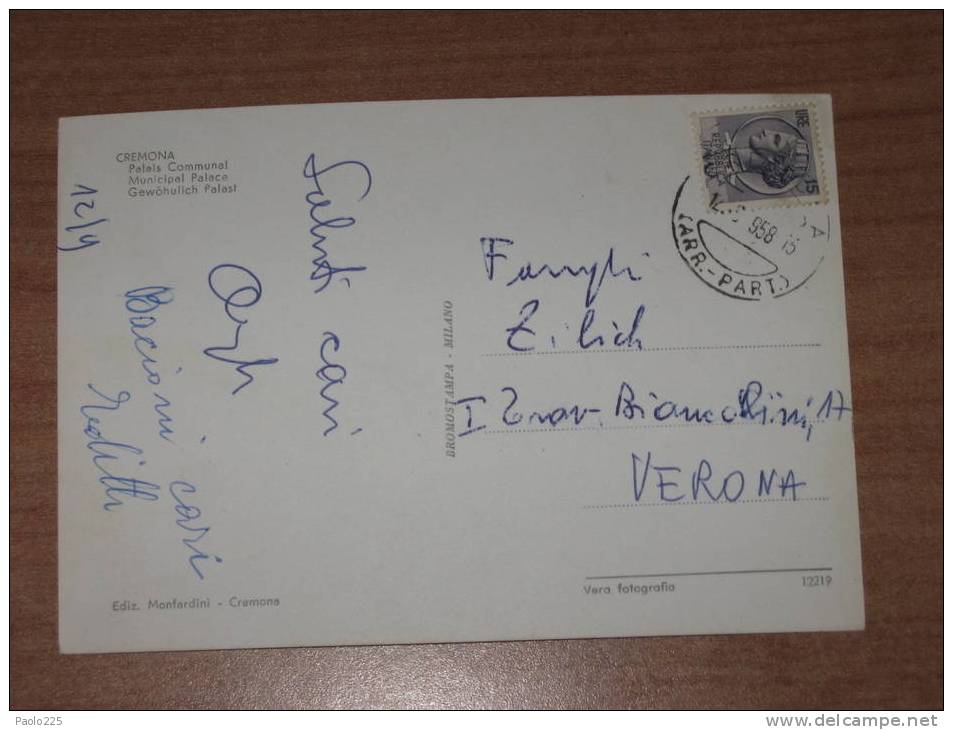 CREMONA
Palais Communal
Municipal Palace
Gewöhulich Palast
12/9
Saluti cari
Bacioni cari
BROMOSTAMPA - MILANO
LIRE 15
REPUBBLICA
ITALIANA
958 15
(ARR.-PART.)
Zilich
I Trav. Bianchini, 17
VERONA
Ediz. Monfardini - Cremona
Vera fotografia
12219
Paolo225
www.delcampe.net